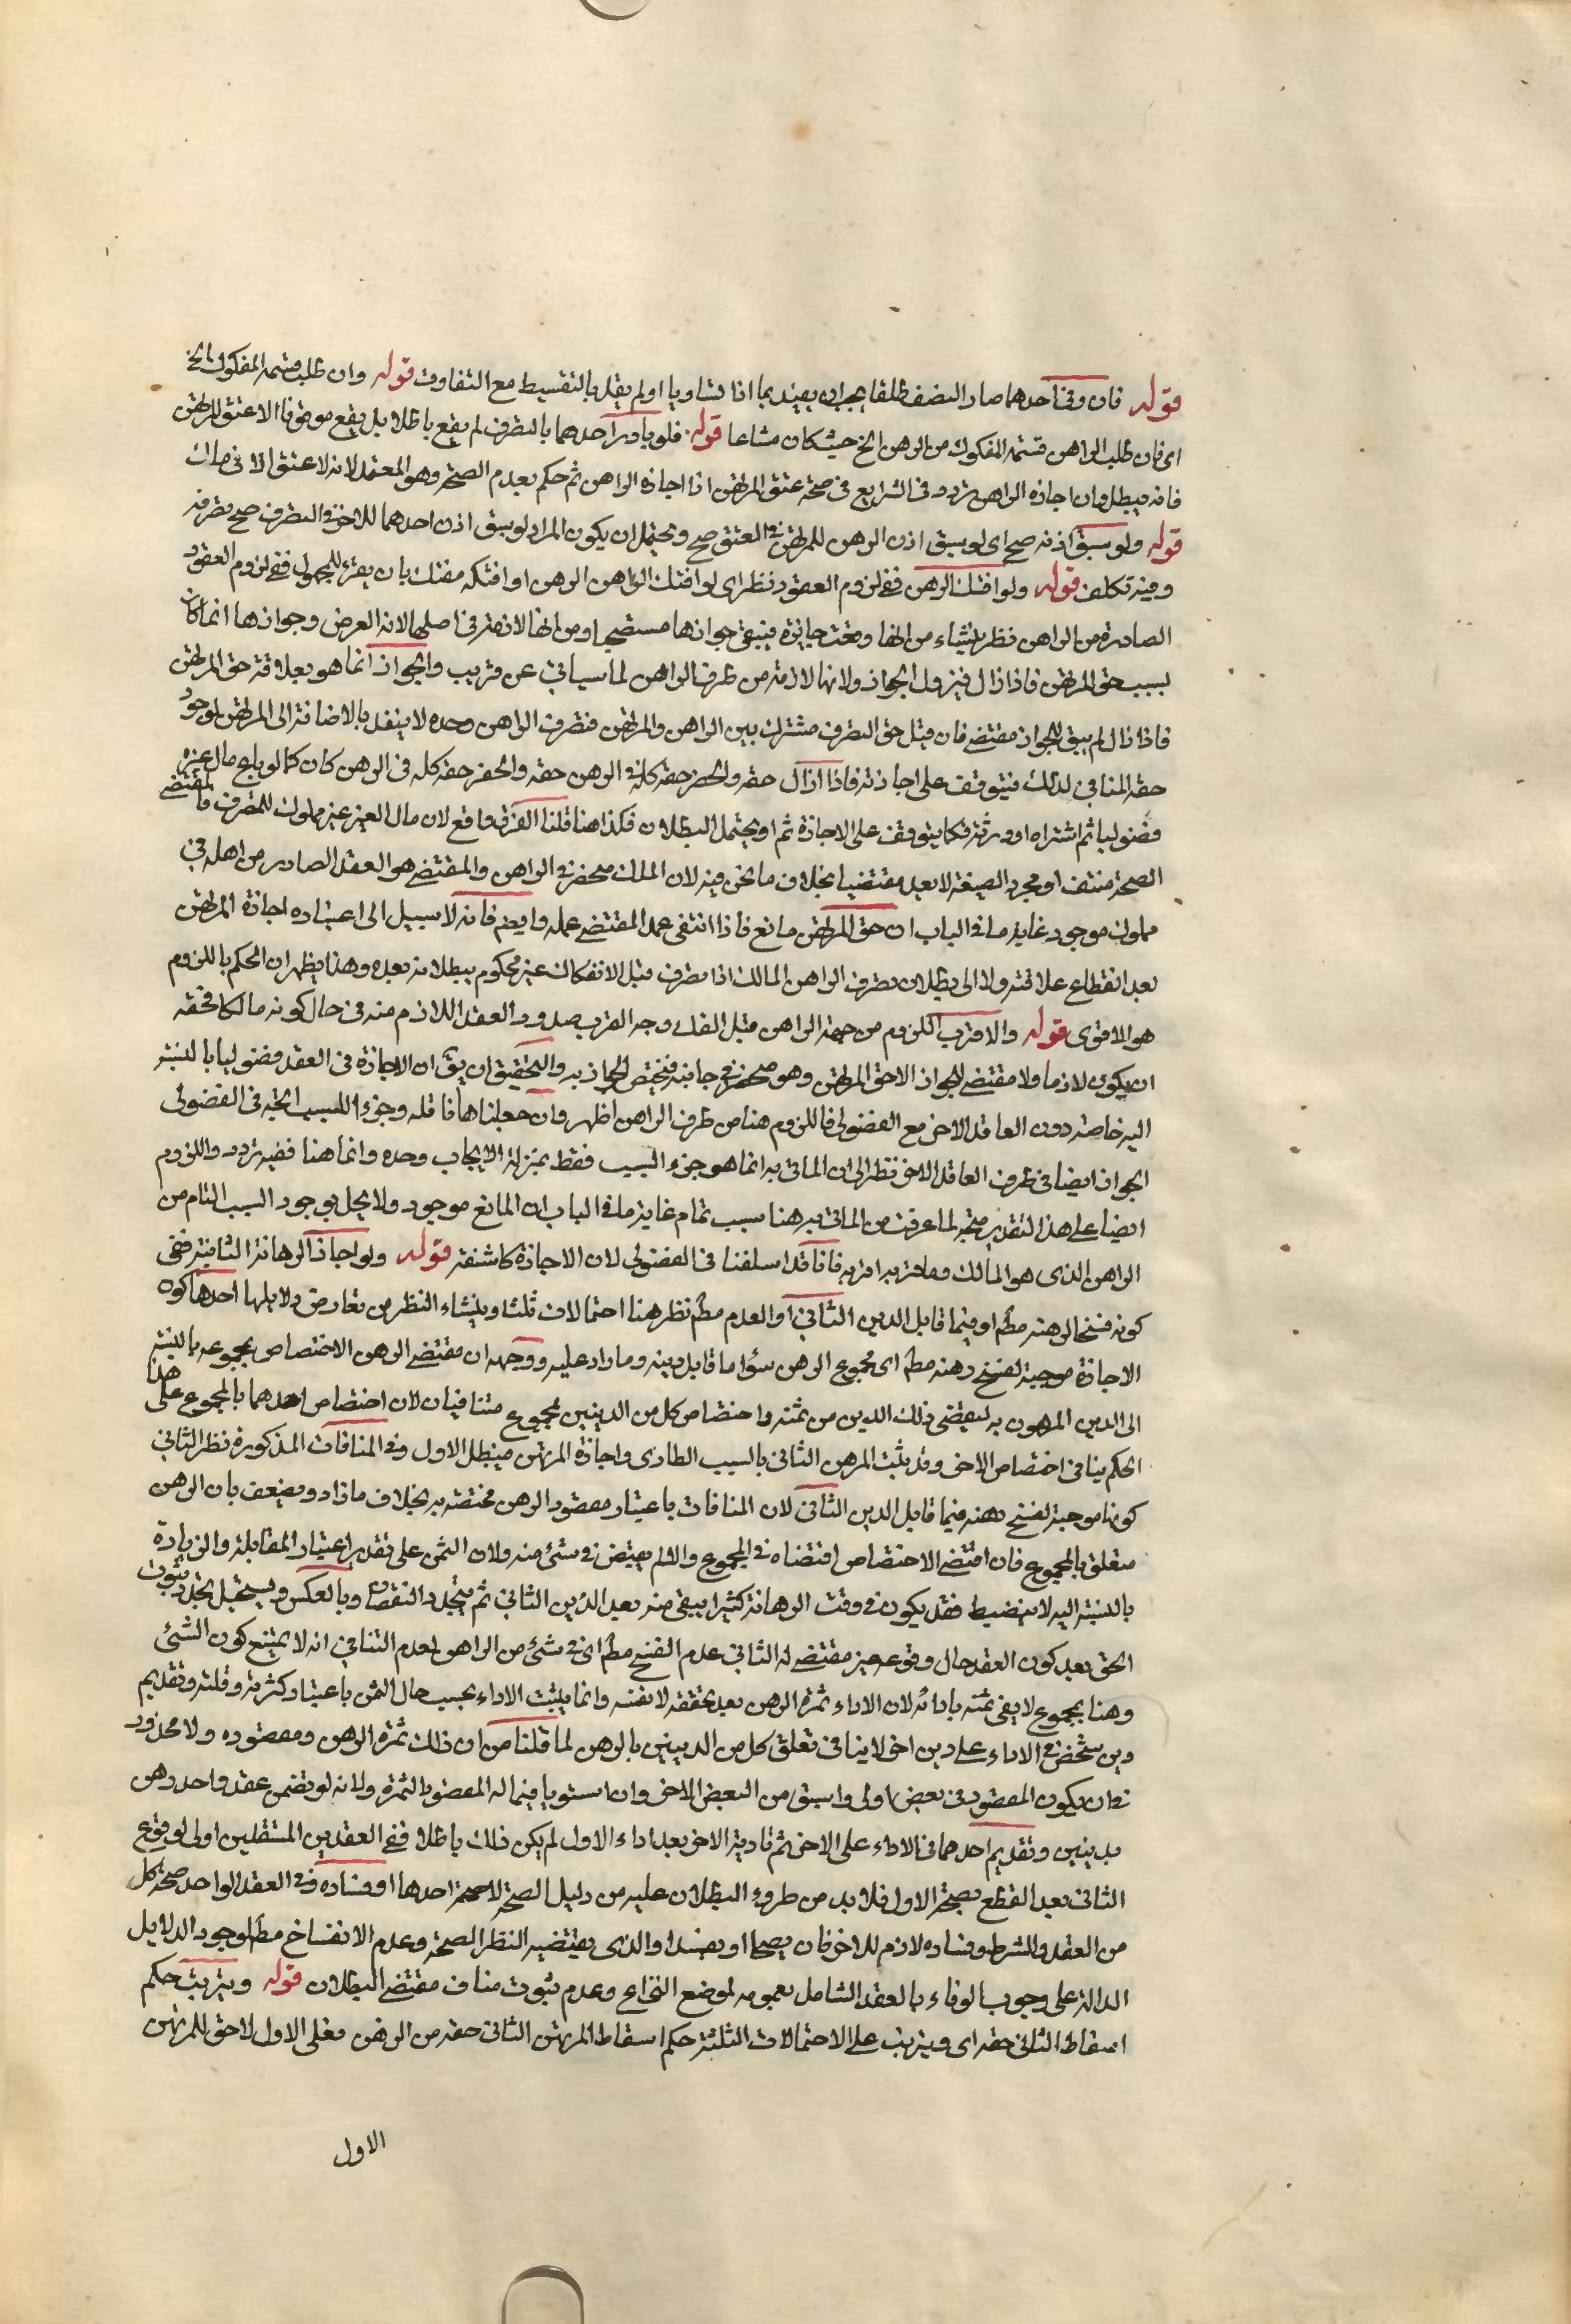 قوله فان وفى احدهما صار النصف طلقا يجب ان يقيد بما اذا تساويا او لم يقل بالتقسيط مع التفاوت قوله وان طلب قسمة المفكوك الخ
اى فان طلب الراهن قسمة المفكوك من الرهن الخ حيث كان مشاعا قوله فلو بادر احدهما بالتصرف لم يقع باطلا بل يقع موقوفا الا عتق المرتهن
فانه يبطل وان اجازه الراهن تردد فى الشرايع فى صحة عتق المرتهن اذا اجازه الراهن ثم حكم بعدم الصحة وهو المعتمد لانه لا عتق الا فى ملك
قوله ولو سبق اذنه صح اى لو سبق اذن الراهن للمرتهن فى العتق صح ويحتمل ان يكون المراد لو سبق اذن احدهما للاخر فى التصرف صح تصرفه
وفيه تكلف قوله ولو افتك الرهن ففى لزوم العقود نظر اى لو افتك الراهن الرهن او افتكه مفتك بان يقرء للمجهول ففى لزوم العقود
الصادرة من الراهن نظر ينشاء من انها وقعت جايزة فيبقى جوازها مستصحبا ومن انها لازمة فى اصلها لانه الفرض وجوازها انما كان
بسبب حق المرتهن فاذا زال فيزول الجواز ولانها لازمة من طرف الراهن لما سياتى عن قريب والجواز انما هو بعلاقة حق المرتهن
فاذا زال لم يبق للجواز مقتضى فان قيل حق التصرف مشترك بين الراهن والمرتهن فتصرف الراهن وحده لا ينفذ بالاضافة الى المرتهن لوجود
حقه المنافى لذلك فيتوقف على اجازته فاذا زال حقه وانحصر حقه كله فى الرهن كان كما لو باع مال غيره
فضوليا ثم اشتراه او ورثه فكما يتوقف على الاجازة ثم او يحتمل البطلان فكذا هنا قلنا الفرق واقع لان مال الغير غير مملوك للمتصرف فالمقتضى
الصحة منتف او مجرد الصيغة لا يعد مقتضيا بخلاف ما نحن فيه لان الملك منحصر فى الراهن والمقتضى هو العقد الصادر من اهله فى
مملوك موجود غاية ما فى الباب ان حق المرتهن مانع فاذا انتفى عمل المقتضى عمله وايضا فانه لا سبيل الى اعتبار اجازة المرتهن
بعد انقطاع علاقته ولا الى بطلان تصرف الراهن المالك اذا تصرف قبل الانفكاك غير محكوم ببطلانه بعده وهذا يظهر ان الحكم باللزوم
هو الاقوى قوله والاقرب اللزوم من جهة الراهن قبل الفك وجه القرب صدور العقد اللازم منه فى حال كونه مالكا فحقه
ان يكون لازما ولا مقتضى للجواز الا حق المرتهن وهو منحصر فى جانبه فيختص الجواز به والتحقيق ان يق ان الاجازة فى العقد فضوليا بالنسبة
اليه خاصة دون العاقد الاخر مع الفضولى فاللزوم هنا من طرف الراهن اظهر وان جعلناها ناقلة وجزءا للسبب اتجه فى الفضولى
الجواز ايضا فى طرف العاقد الاخر نظرا الى ان الماتى به انما هو جزء السبب فقط بمنزلة الايجاب وحده وانما هنا ففيه تردد واللزوم
ايضا على هذا التقدير متجه لما عرفت من الماتى به هنا سبب تام غاية ما فى الباب ان المانع موجود ولا يخل بوجود السبب التام من
الراهن الذى هو المالك وما قربه اقربه فانا قد اسلفنا فى الفضولى لان الاجازة كاشفة قوله ولو اجاز الرهانة الثانية ففى
كونه فسخا لرهنه مطم او فيما قابل الدين الثانى او العدم مطم نظر هنا احتمالات ثلث وينشاء النظر من تعارض دلايلها احدها كون
الاجازة موجبة لفسخ رهنه مطم اى مجموع الرهن سؤا ما قابل دينه وما زاد عليه ووجهه ان مقتضى الرهن الاختصاص بمجموعه بالنسبة
الى الدين المرهون به ليقضى ذلك الدين من ثمنه واختصاص كل من الدينين بمجموع متنافيان لان اختصاص احدهما بالمجموع على هذا
الحكم ينافى اختصاص الاخر وقد يثبت الرهن الثانى بالسبب الطارى واجازة المرتهن فيبطل الاول وفى المنافات المذكورة نظر الثانى
كونها موجبة لفسخ رهنه فيما قابل الدين الثانى لان المنافات باعتبار مقصود الرهن مختصة به بخلاف ما زاد ويضعف بان الرهن
متعلق بالمجموع فان اقتضى الاختصاص اقتضاه فى المجموع والا لم يقتض فى شئ منه ولان الثمن على تقدير اعتبار المقابلة والزيادة
بالنسبة اليه لا ينضبط فقد يكون فى وقت الرهانة كثيرا يبقى منه بعد الدين الثانى ثم يتجدد النقصان وبالعكس ويستحيل تجدد ثبوت
الحق بعد كون العقد حال وقوعه غير مقتضى له الثانى عدم الفسخ مطم اى فى شئ من الراهن لعدم التنافى انه لا يمتنع كون الشئ
وهنا بمجموع لا يفى ثمنه بادائه لان الاداء ثمرة الرهن بعد تحققه لا نفسه وانما يثبت الاداء بحسب حال الثمن باعتبار كثرته وقلته وتقديم
دين شخص فى الاداء على دين اخر لا ينافى تعلق كل من الدينين بالرهن لما قلنا من ان ذلك ثمرة الرهن ومقصوده ولا محذور
فى ان يكون المقصود فى بعض اولى واسبق من البعض الاخر وان استويا فيما له المقصود الثمرة ولانه لو تضمن عقد واحد رهن
بدينين وتقديم احدهما فى الاداء على الاخر ثم تادية الاخر بعد اداء الاول لم يكن ذلك باطلا ففى العقدين المستقلين اولى لوقوع
الثانى بعد القطع بصحة الاول فلا بد من طروء البطلان عليه من دليل الصحة لا صحة احدها او فساده وفى العقد الواحد صحة كل
من العقد والشرط وفساده لازم للاخر فان يصحا او يفسدا والذى يقتضيه النظر الصحة وعدم الانفساخ مطم لوجود الدلايل
الدالة على وجوب الوفاء بالعقد الشامل بعمومه لموضع النزاع وعدم ثبوت مناف مقتضى البطلان قوله ويترتب حكم
اسقاط الثانى حقه اى ويترتب على الاحتمالات الثلثة حكم اسقاط المرتهن الثانى حقه من الرهن فعلى الاول لا حق للمرتهن
الاول